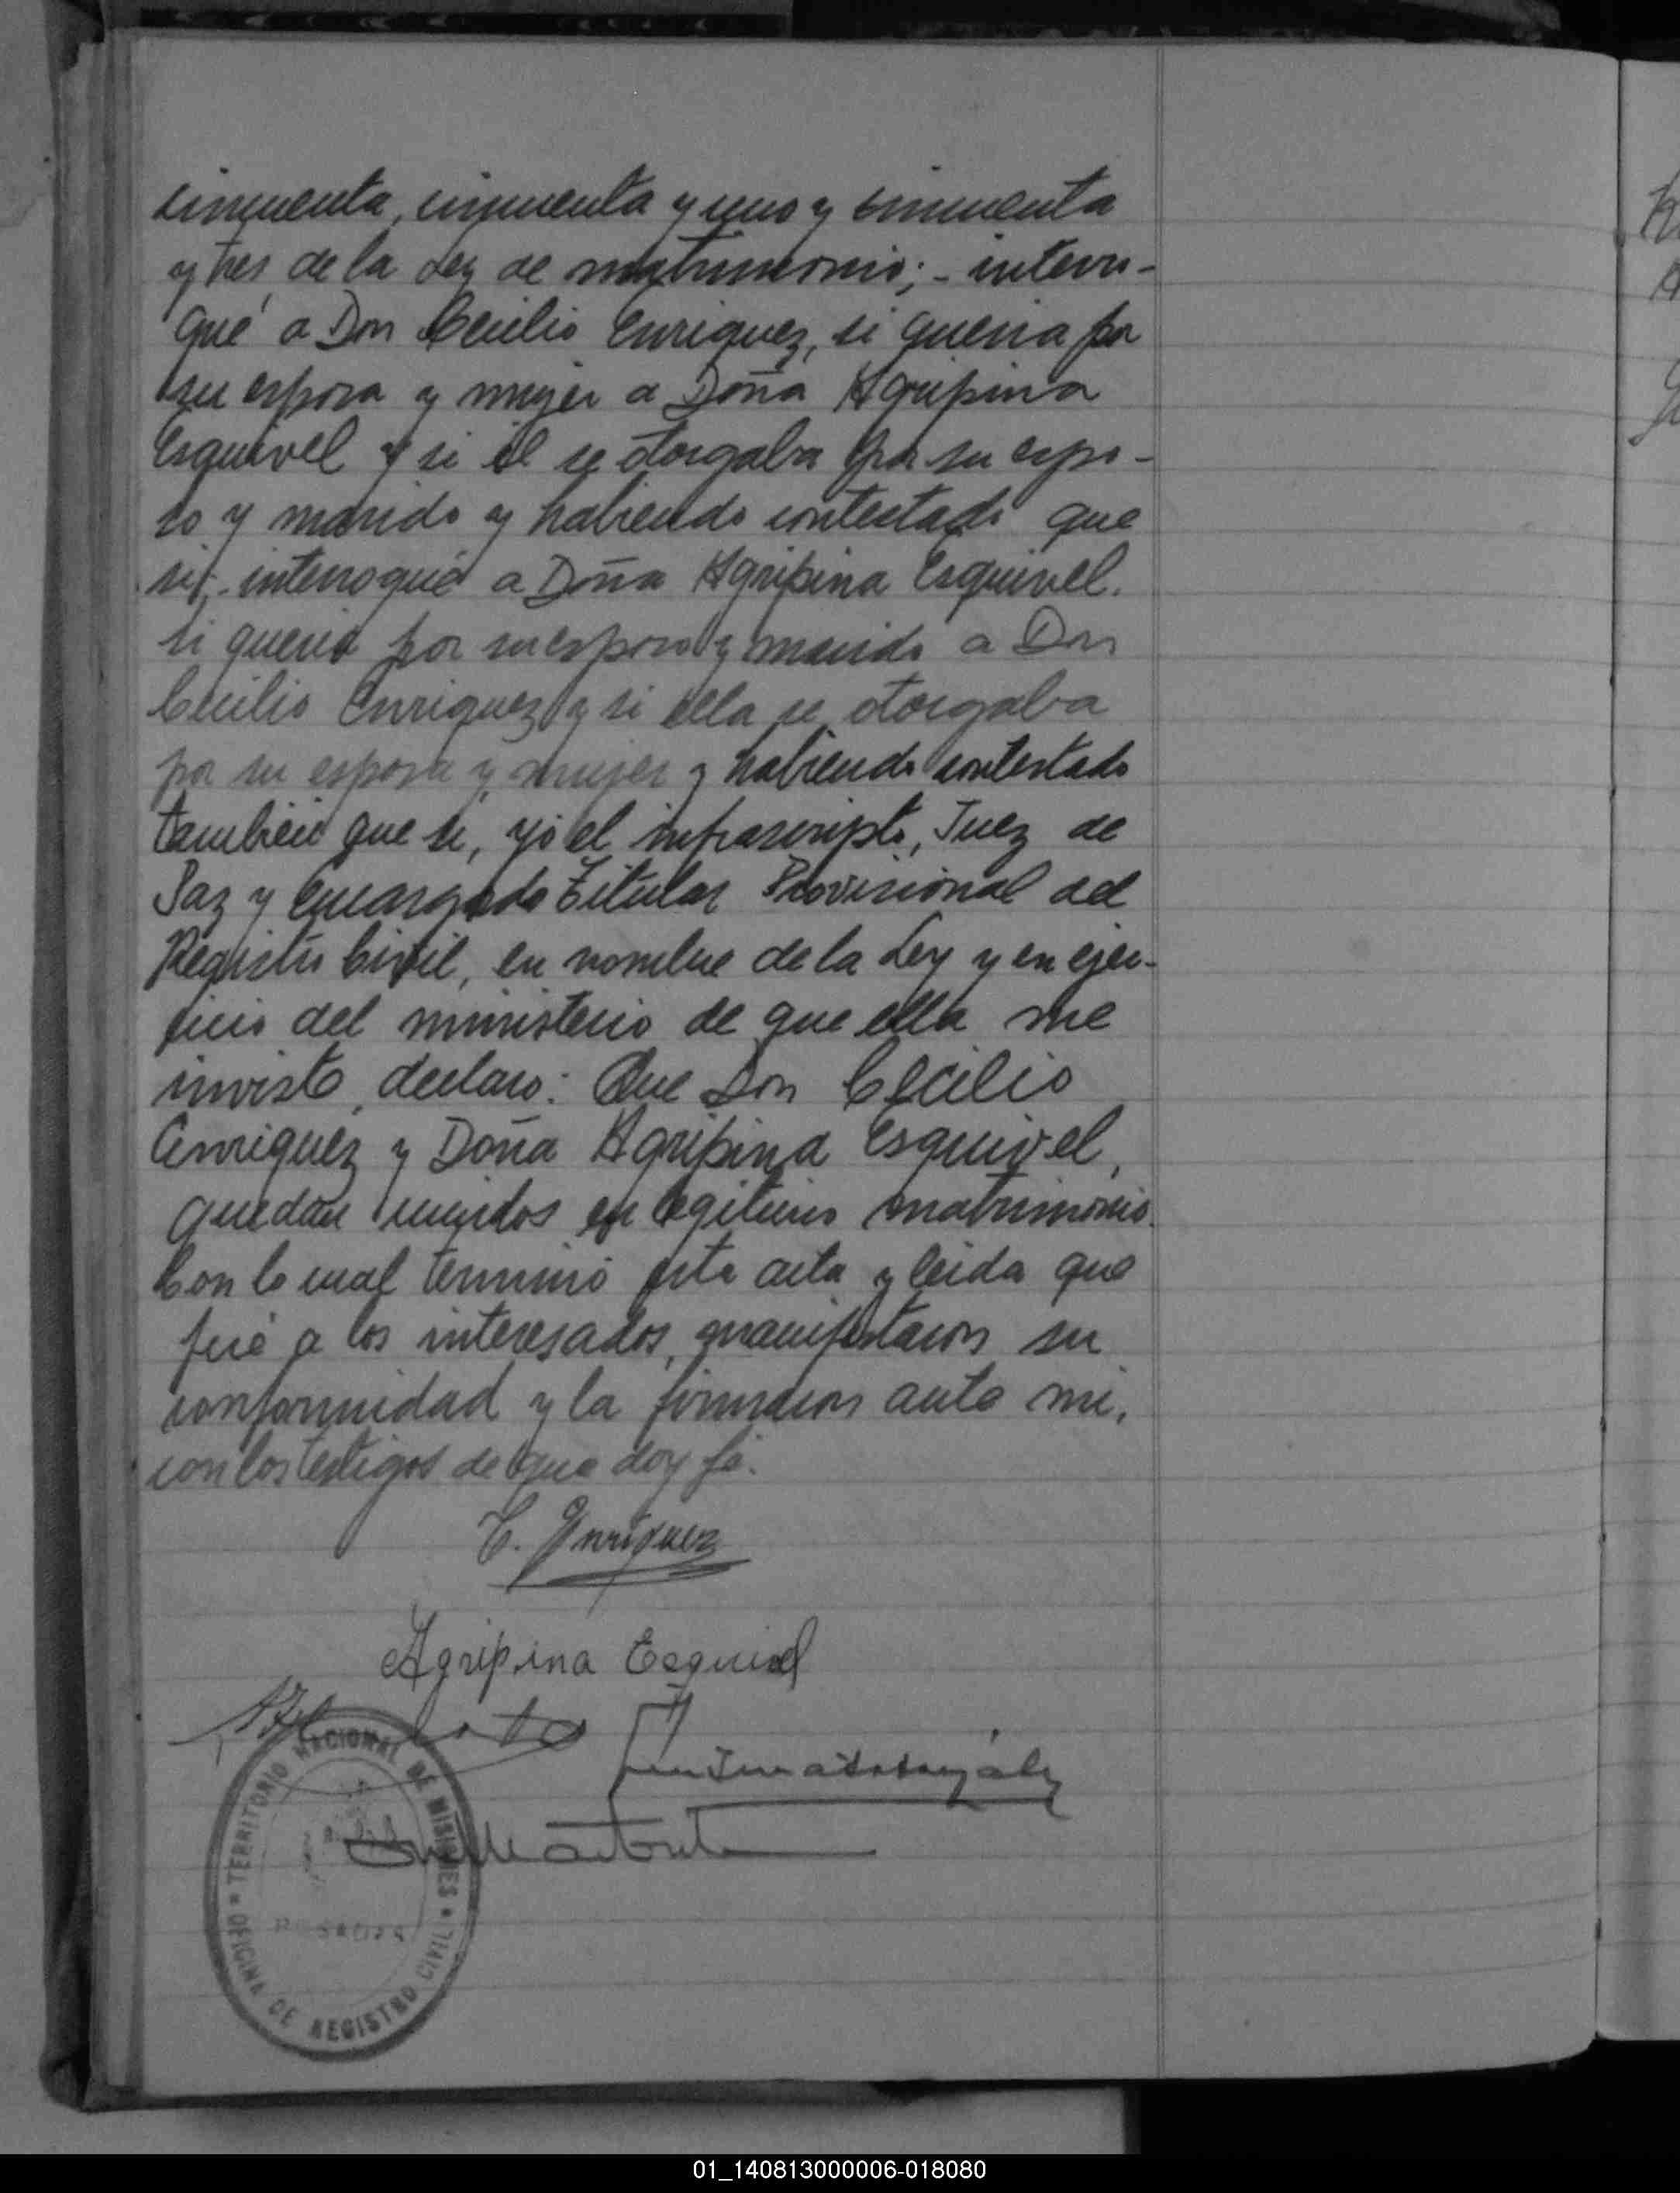 cincuenta, cincuenta y uno y cincuenta
y tres de la Ley de matrimonio; - interro-
gué a Don Cecilio Enriquez, si queria por
su esposa y mujer a Doña Agripina
Esquivel y si él se otorgaba por su espo-
so y marido y habiendo contestado que
si; - interrogué a Doña Agripina Esquivel.
si queria por su esposo y marido a Don
Cecilio Enriquez y si ella se otorgaba
por su esposa y mujer y habiendo contestado
también que si, yo el infrascripto, Juez de
Paz y Encargado Titular Provisional del
Registro Civil, en nombre de la Ley y en ejer-
cicio del ministerio de que ella me
inviste, declaro: Que Don Cecilio
Enriquez y Doña Agripina Esquivel,
quedan unidos en legitimo matrimonio.
Con lo cual terminó esta acta y leida que
fué a los interesados, manifestaron su
conformidad y la firmaron ante mi,
con los testigos de que doy fé.
C. Enriquez
Agripina Esquivel
TERRITORIO NACIONAL DE MISIONES
POSADAS
OFICINA DE REGISTRO CIVIL
01_140813000006-018080